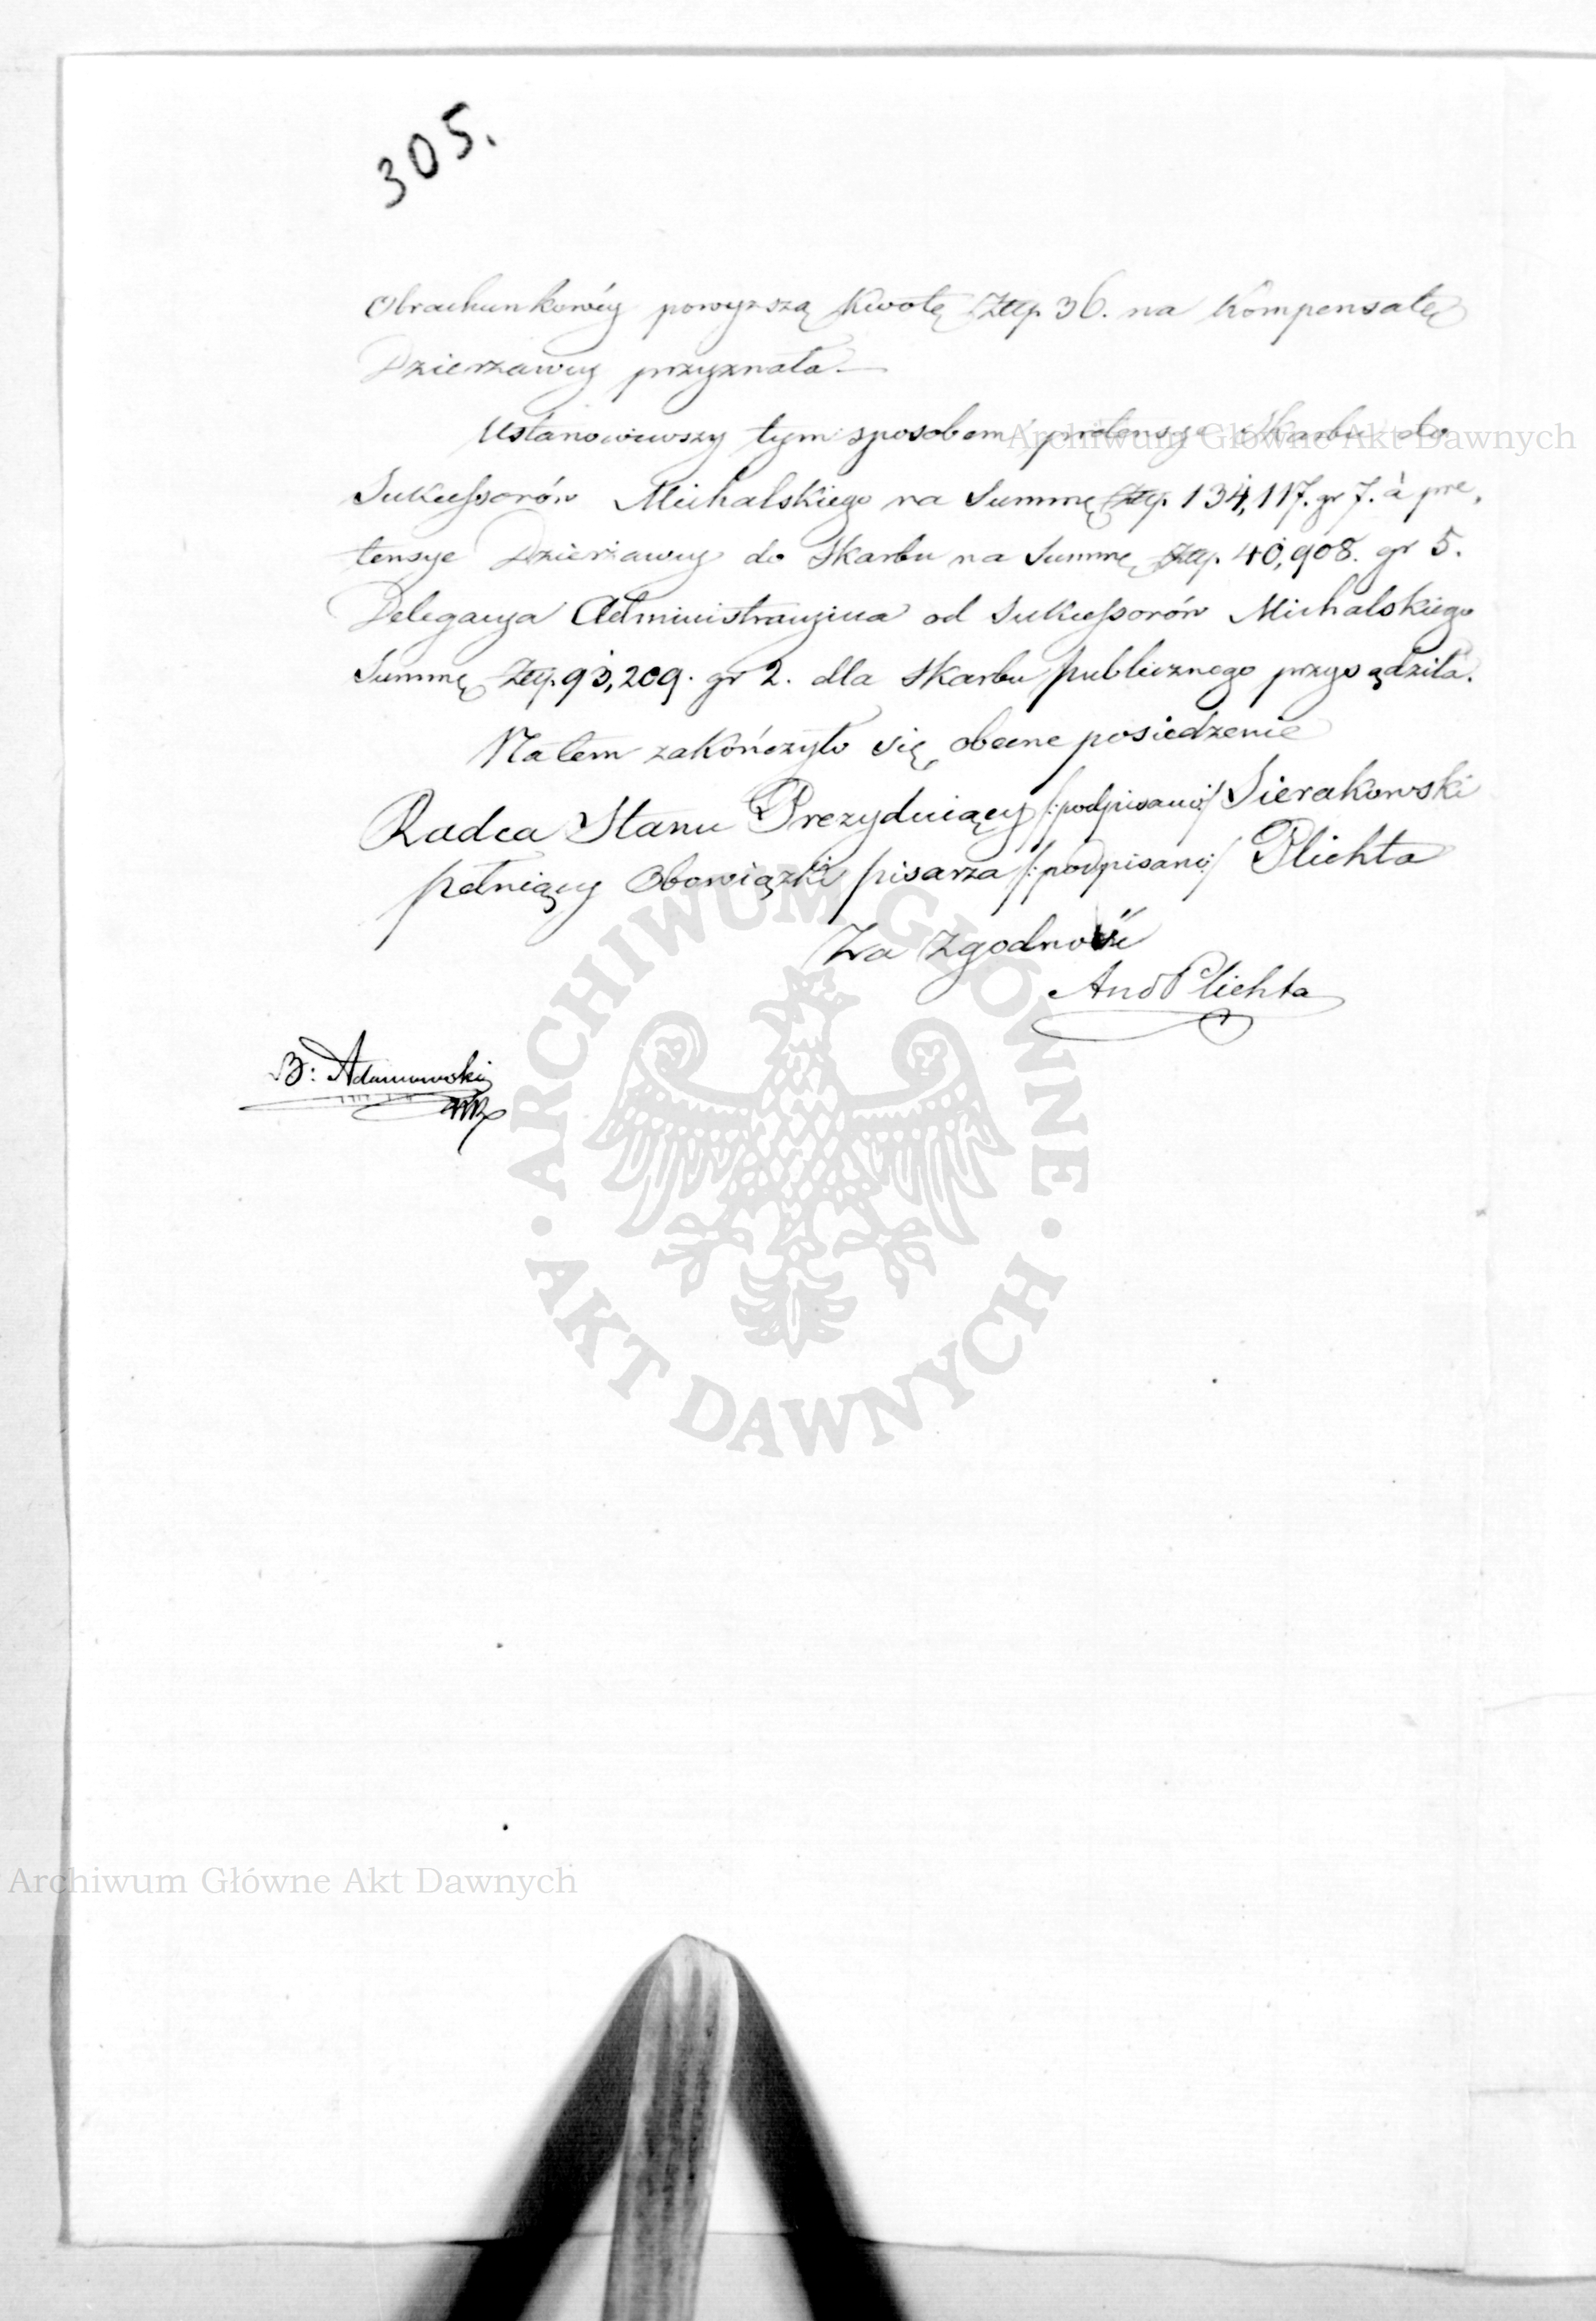 305.
Obrachunkowéy powyzszą Kwotę Złtp. 36. na Kompensatę
Dzierzawcy przyznała.—
Ustanowiwszy tym sposobem pretensye Skarbu do
Sukcessorów Michalskiego na Summę Złtp. 134,117. gr 7. à pre,
tensye Dzierżawcy do Skarbu na Summę Złtp. 40,908. gr 5.
Delegacya Administracyina od Sukcessorów Michalskiego
Summę Złtp. 93,209. gr 2. dla Skarbu publicznego przysądziła.
Na tem zakończyło się obecne posiedzenie
Radca Stanu Prezyduiący /:podpisano:/ Sierakowski
pełniący Obowiązki pisarza /:podpisano:/ Plichta
Za Zgodność
And Plichta
B: Adamowski
Archiwum Główne Akt Dawnych
ARCHIWUM GŁÓWNE · AKT DAWNYCH ·
Archiwum Główne Akt Dawnych